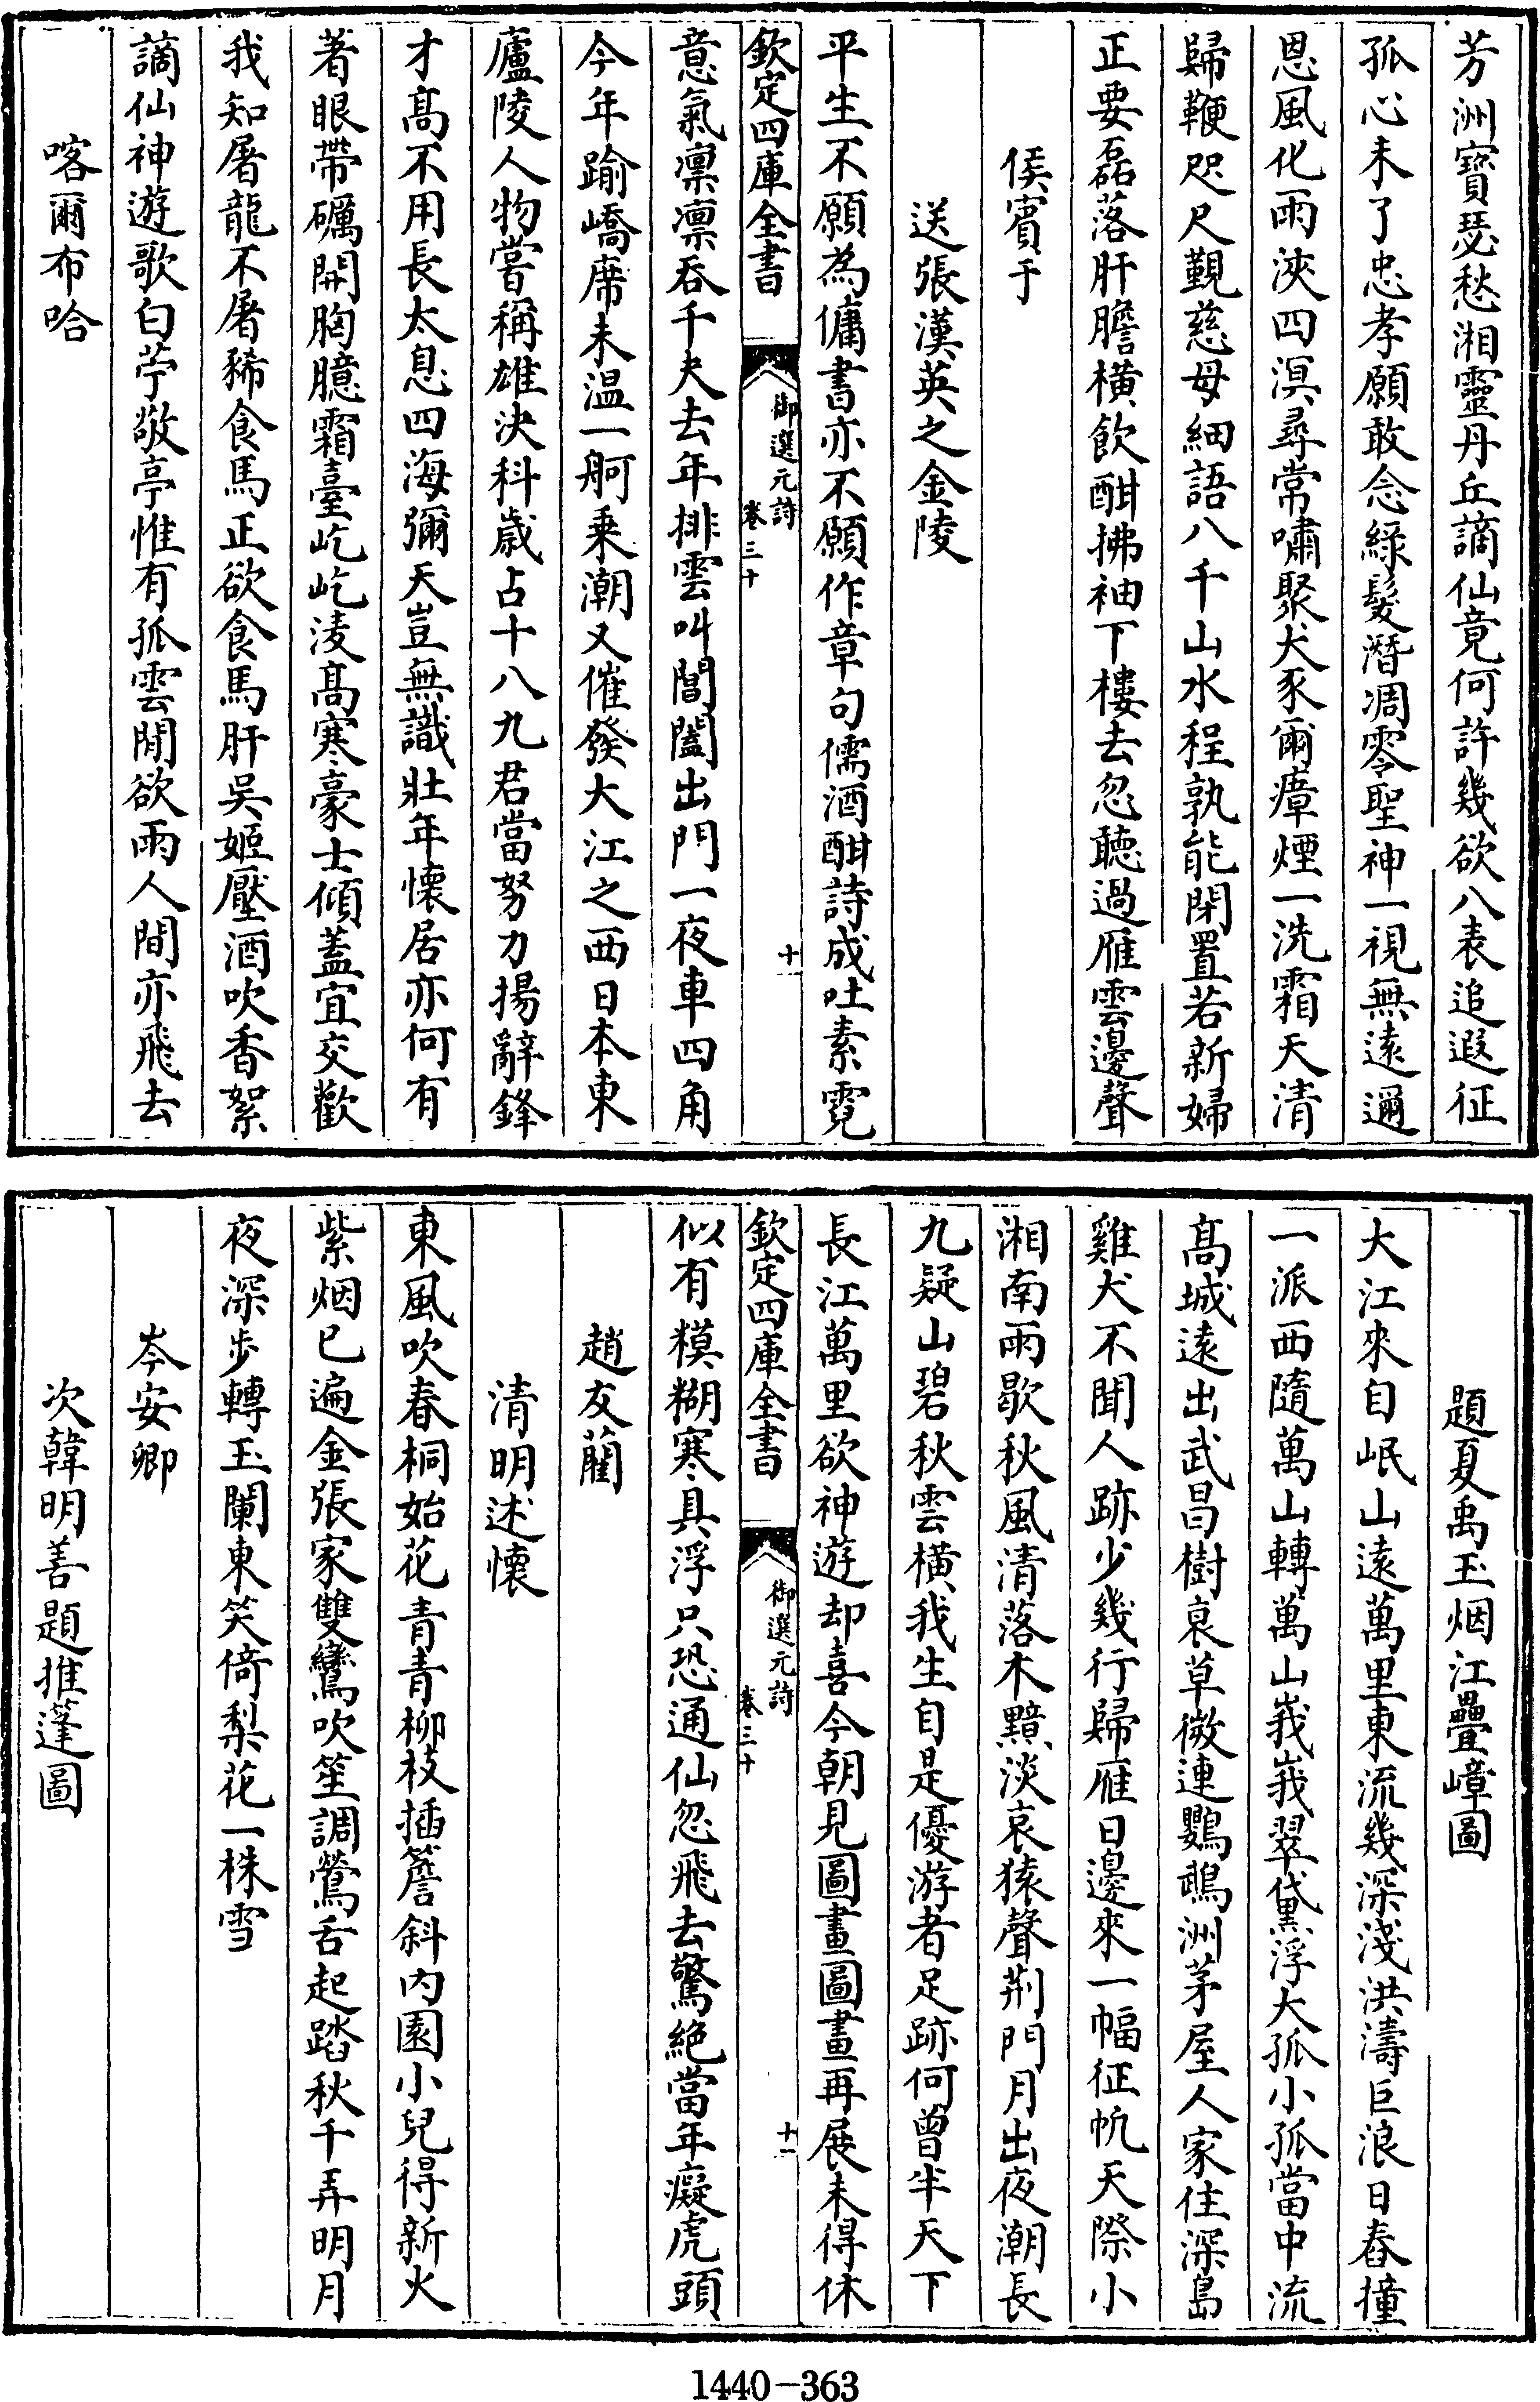 芳洲寶瑟愁湘靈丹丘謫仙竟何許幾欲八表追遐征
孤心未了忠孝願敢念綠髮潛凋零聖神一視無遠邇
恩風化雨浹四溟尋常嘯聚犬豕爾瘴煙一洗霜天清
歸鞭咫尺覲慈母細語八千山水程孰能閉置若新婦
正要磊落肝膽橫飲酣拂袖下樓去忽聽過雁雲邊聲
侯賓于
送張漢英之金陵
平生不願為傭書亦不願作章句儒酒酣詩成吐素霓
欽定四庫全書
御選元詩
卷三十
十
意氣凛凛呑千夫去年排雲叫閶闔出門一夜車四角
今年踰嶠席未温一舸乘潮又催發大江之西日本東
廬陵人物嘗稱雄決科歲占十八九君當努力揚辭鋒
才髙不用長太息四海彌天豈無識壯年懷居亦何有
著眼帶礪開胸臆霜臺屹屹淩髙寒豪士傾蓋宜交歡
我知屠龍不屠豨食馬正欲食馬肝吳姬壓酒吹香絮
謫仙神遊歌白苧敬亭惟有孤雲閒欲雨人間亦飛去
喀爾布哈
題夏禹玉烟江疊嶂圖
大江來自岷山逺萬里東流幾深淺洪濤巨浪日舂撞
一派西隨萬山轉萬山峩峩翠黛浮大孤小孤當中流
髙城逺出武昌樹哀草微連鸚鵡洲茅屋人家住深島
雞犬不聞人跡少幾行歸雁日邊來一幅征帆天際小
湘南雨歇秋風清落木黯淡哀猿聲荆門月出夜潮長
九疑山碧秋雲橫我生自是優游者足跡何曾半天下
長江萬里欲神遊却喜今朝見圖畫圖畫再展未得休
欽定四庫全書
御選元詩
卷三十
十一
似有糢糊寒具浮只恐通仙忽飛去驚絶當年癡虎頭
趙友藺
清明述懷
東風吹春桐始花青青柳枝插簷斜内園小兒得新火
紫烟已遍金張家雙鸞吹笙調鶯舌起踏秋千弄明月
夜深步轉玉闌東笑倚梨花一株雪
岑安卿
次韓明善題推篷圖
1440-363